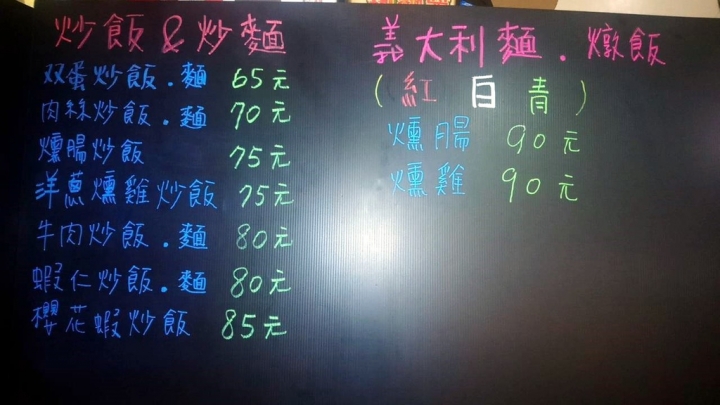 炒飯&炒麵
双蛋炒飯.麵 65元
肉絲炒飯.麵 70元
燻腸炒飯 75元
洋蔥燻雞炒飯 75元
牛肉炒飯.麵 80元
蝦仁炒飯.麵 80元
櫻花蝦炒飯 85元
義大利麵.燉飯
(紅 白 青)
燻腸 90元
燻雞 90元